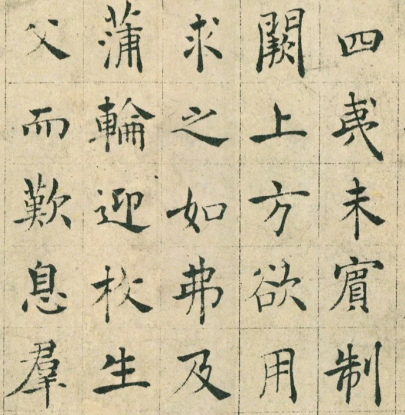 四夷未賓制
闕上方欲用
求之如弗及
蒲輪迎枚生
父而歎息羣